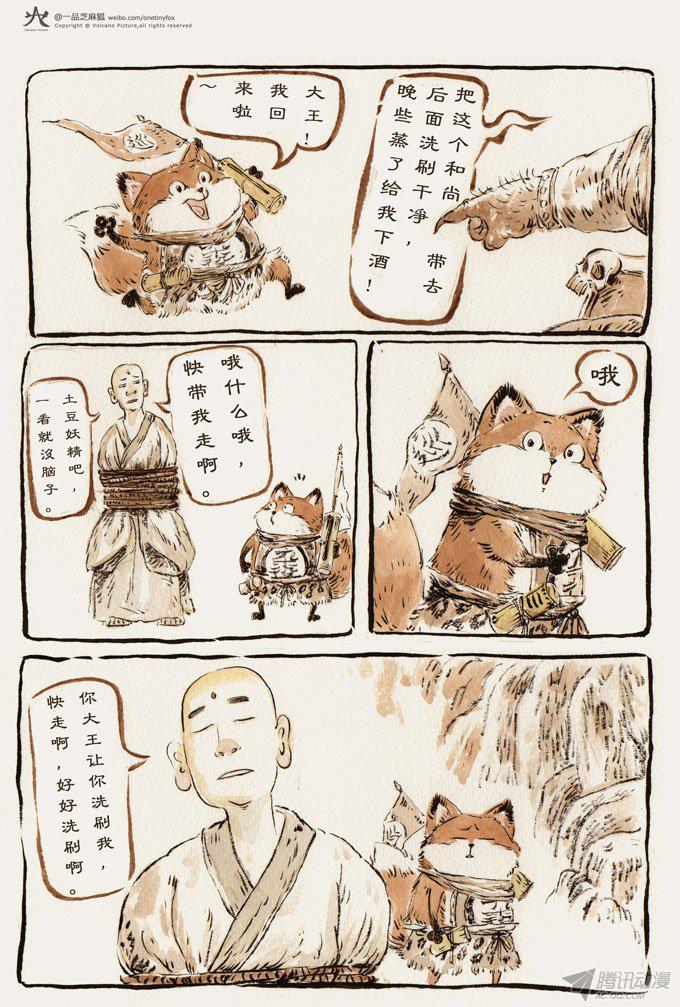 @一品芝麻狐 weibo.com/onetinyfox
Volcano Picture
Copyright @ Volcano Picture,all rights reserved
大王！
我回
来啦
～
巡
把这个和尚
后面洗刷干净，带去
晚些蒸了给我下酒！
哦
哦什么哦，
快带我走啊。
土豆妖精吧，
一看就沒脑子。
你大王让你洗刷我，
快走啊，好好洗刷啊。
腾讯动漫
AC.QQ.COM